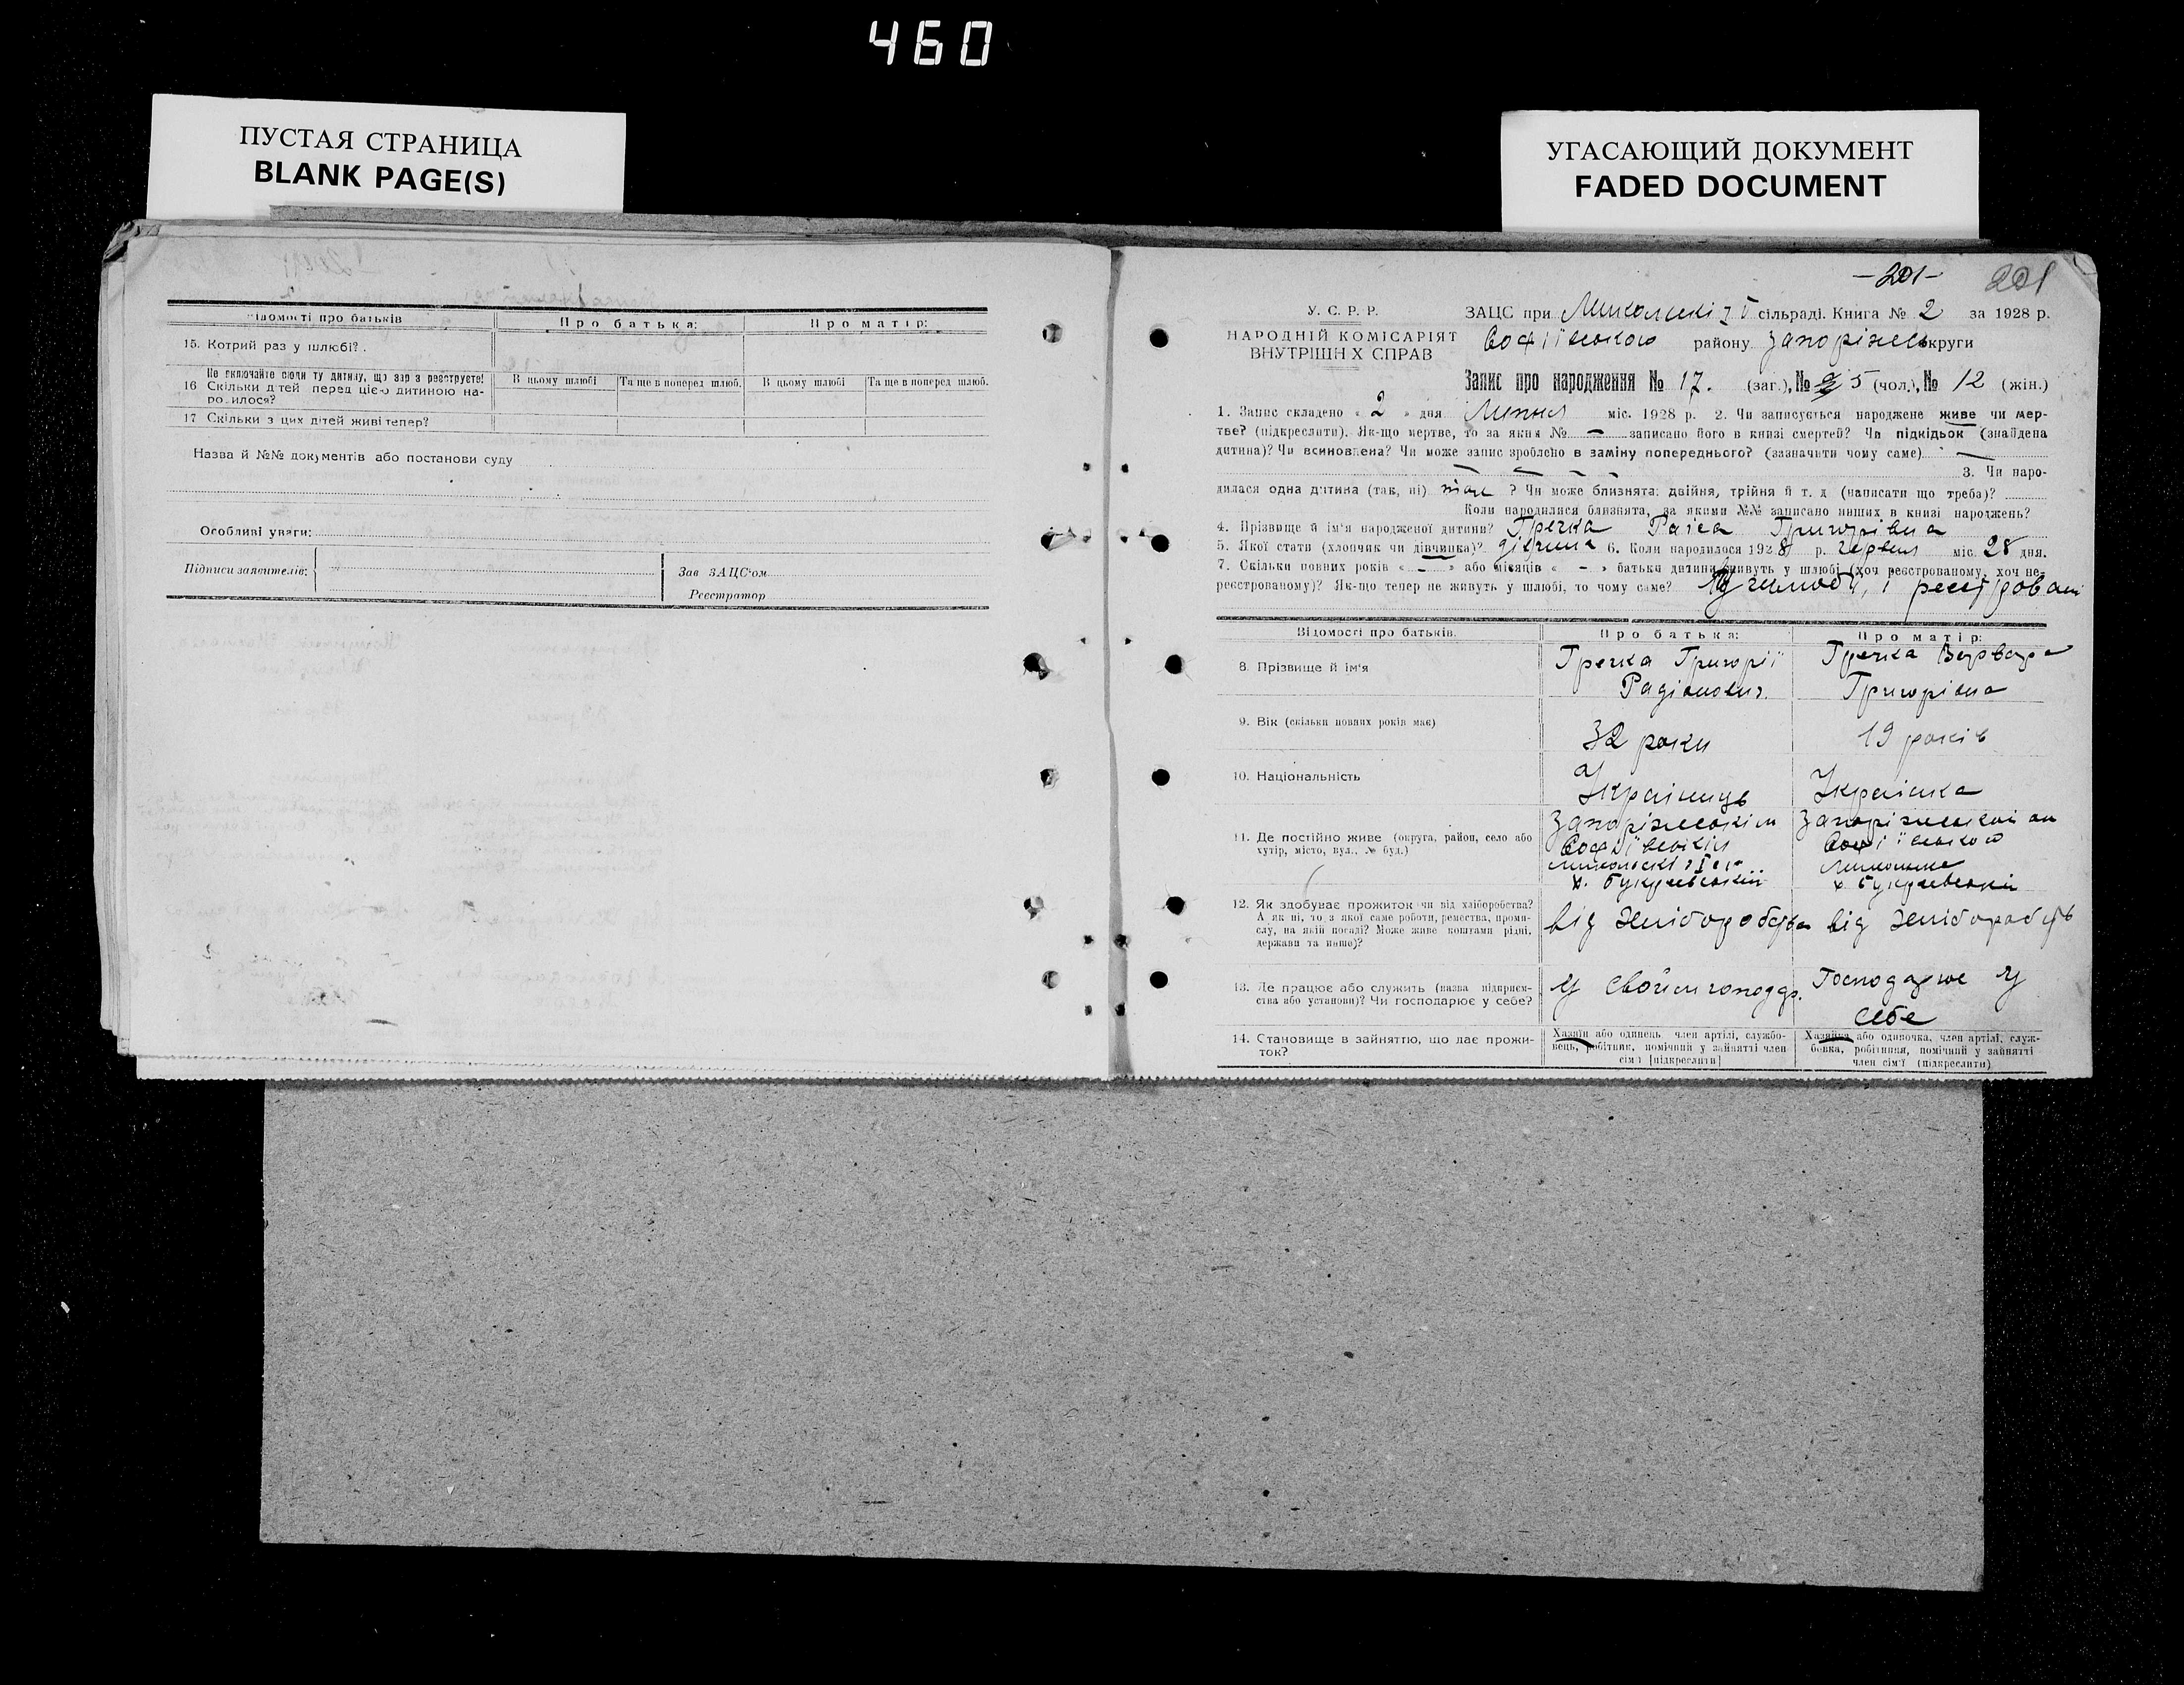 460
ПУСТАЯ СТРАНИЦА
BLANK PAGE(S)
УГАСАЮЩИЙ ДОКУМЕНТ
FADED DOCUMENT
Відомості про батьків
Про батька:
Про матір:
15. Котрий раз у шлюбі?
Не включайте сюди ту дитину, що зараз реєструєте!
16 Скільки дітей перед цією дитиною на-
родилося?
В цьому шлюбі
Та ще в поперед шлюб.
В цьому шлюбі
Та ще в поперед шлюб.
17 Скільки з цих дітей живі тепер?
Назва й №№ документів або постанови суду
Особливі уваги:
Підписи заявителів:
Зав ЗАЦС'ом
Реєстратор
-201- 201
У. С. Р. Р.
НАРОДНІЙ КОМІСАРІЯТ
ВНУТРІШНІХ СПРАВ
ЗАЦС при сільраді. Книга № 2 за 1928 р.
Софіївського району Запоріжськ округи
Запис про народження № 17. (заг.), № 5 (чол.), № 12 (жін.)
1. Запис складено « 2 » дня Липня міс. 1928 р. 2. Чи записується народжене живе чи мер-
тве? (підкреслити). Як-що мертве, то за яким № — записано його в книзі смертей? Чи підкідьок (знайдена
дитина)? Чи всиновлена? Чи може запис зроблено в заміну попереднього? (зазначити чому саме) —
3. Чи наро-
дилася одна дитина (так, ні) так ? Чи може близнята: двійня, трійня й т. д (написати що треба)?
Коли народилися близнята, за якими №№ записано инших в книзі народжень?
4. Прізвище й ім'я народженої дитини? Гречка Раіса Григорівна
5. Якої стати (хлопчик чи дівчинка)? дівчина 6. Коли народилося 1928 р. червня міс. 28 дня.
7. Скільки повних років « — » або місяців « — » батьки дитини живуть у шлюбі (хоч реєстрованому, хоч не-
реєстрованому)? Як-що тепер не живуть у шлюбі, то чому саме?
Відомості про батьків.
Про батька:
Про матір:
8. Прізвище й ім'я
Гречка Григорій
Радіонович.
Гречка Варвара
Григорівна
9. Вік (скільки повних років має)
32 роки
19 років
10. Національність
Українець
Українка
11. Де постійно живе (округа, район, село або
хутір, місто, вул., № буд.)
12. Як здобуває прожиток чи від хліборобства?
А як ні, то з якої саме роботи, ремества, проми-
слу, на якій посаді? Може живе коштами рідні,
держави та инше)?
від хліборобства
від
13. Де працює або служить (назва підприєм-
ства або установи)? Чи господарює у себе?
У
Господарює у
себе
14. Становище в зайняттю, що дає прожи-
ток?
Хазяїн або одинець член артілі, службо-
вець, робітник, помічний у зайнятті член
сім'ї [підкреслити]
Хазяйка або одиночка, член артілі, служ-
бовка, робітниця, помічний у зайнятті
член сім'ї (підкреслити)